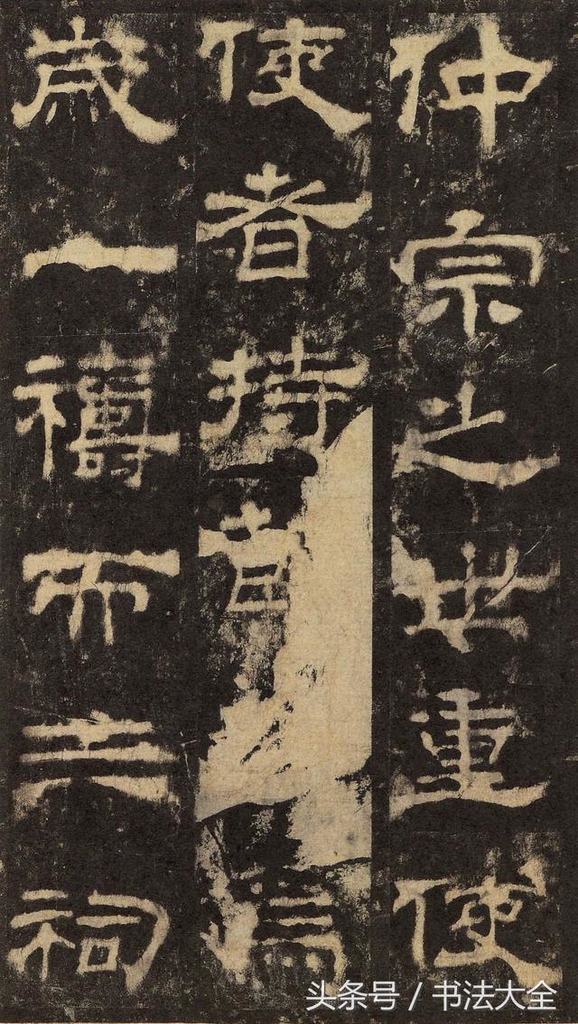 仲宗之世重使
使者持焉
歲一禱而三祠
头条号 / 书法大全